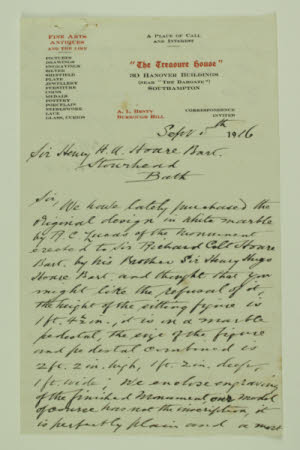 FINE ARTS
ANTIQUES
AND THE LIKE
PICTURES
DRAWINGS
ENGRAVINGS
SILVER
SHEFFIELD
PLATE
JEWELLERY
FURNITURE
COINS
MEDALS
POTTERY
PORCELAIN
NEEDLEWORK
LACE
GLASS, CURIOS
A PLACE OF CALL
AND INTEREST
"The Treasure House"
30 HANOVER BUILDINGS
(NEAR "THE BARGATE")
SOUTHAMPTON
A. L. HENTY
BURROUGH HILL
CORRESPONDENCE
INVITED
Sept 5th 1916
Sir Henry H. A. Hoare Bart.
Stourhead
Bath
Sir
We have lately purchased the
original design in white marble
by R C Lucas of the Monument
erected to Sir Richard Colt Hoare
Bart. by his Brother Sir Henry Hugo
Hoare Bart. and thought that you
might like the refusal of it,
the height of the sitting figure is
1ft. 4½in., it is on a marble
pedestal, the size of the figure
and pedestal combined is
2ft. 2 in. high, 1ft. 2 in. deep,
1ft. wide, We enclose engraving
of the finished Monument, our model
of course has not the inscription, it
is perfectly plain and a most